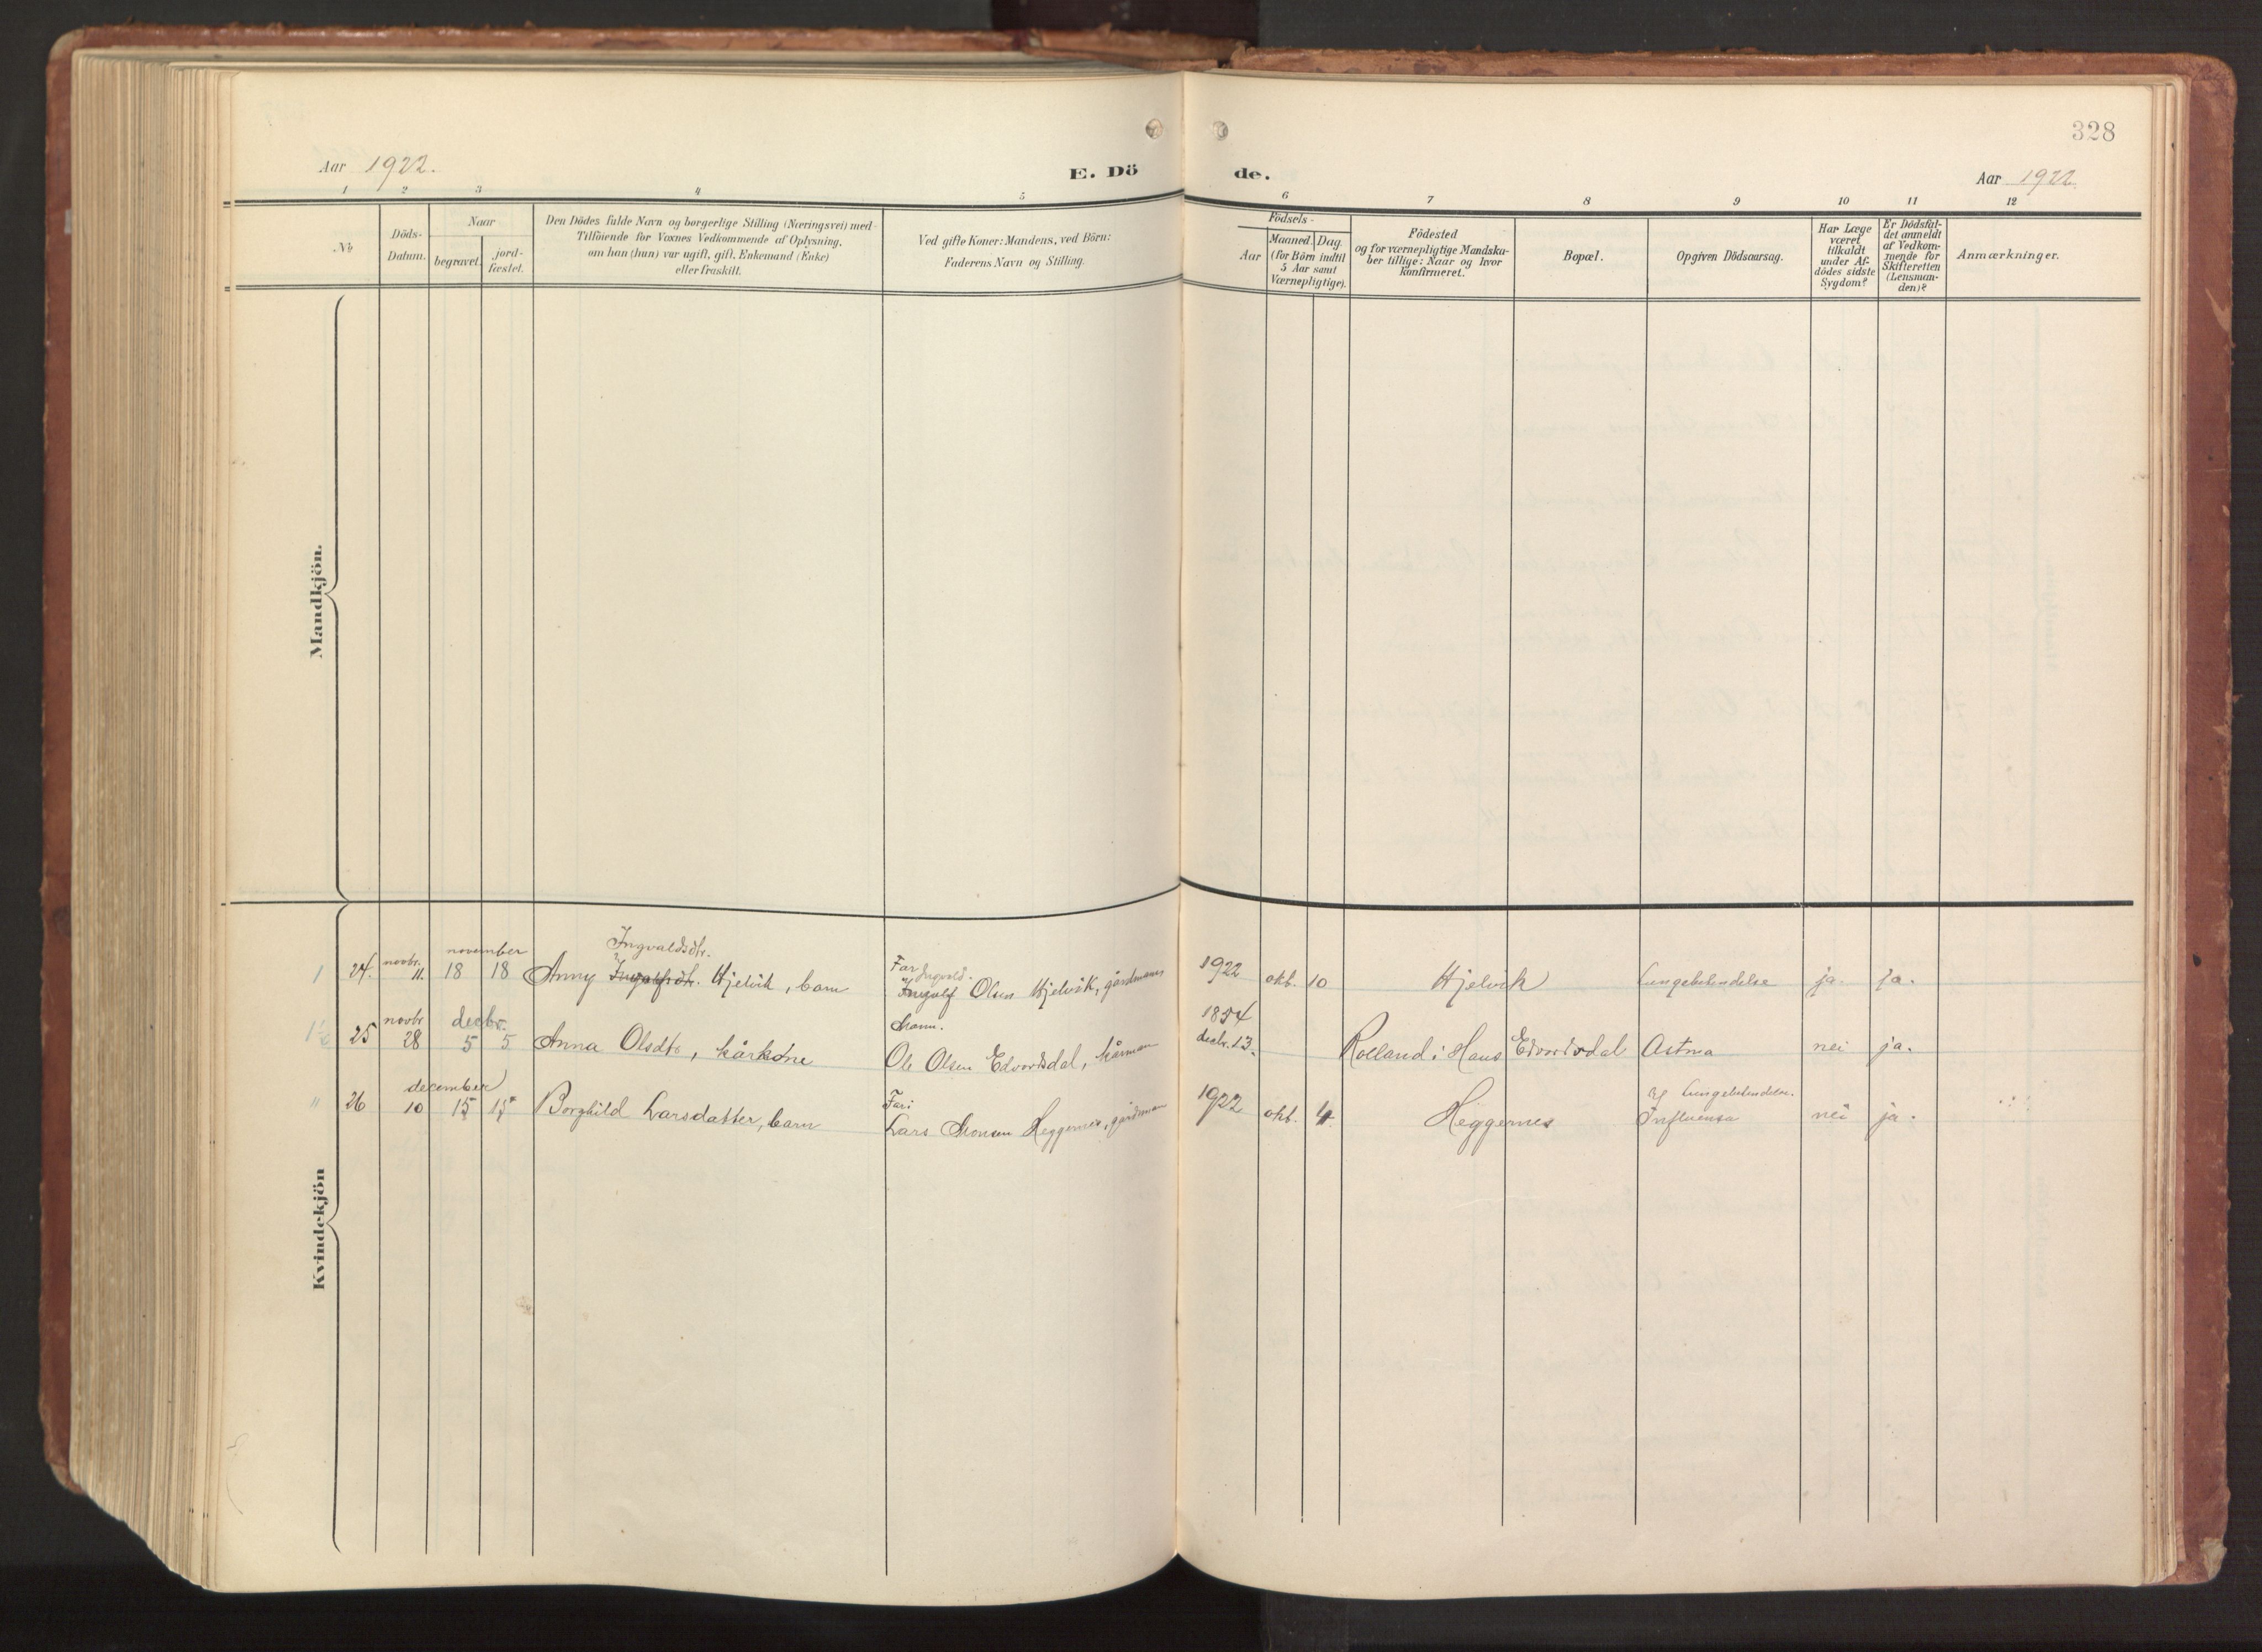 328
Aar 1922.
E. Dö
de.
Aar 1922
1 2 3 4 5 6 7 8 9 10 11 12
No
Döds-
Datum.
Naar
begravet.
jord-
fæstet.
Den Dödes fulde Navn og borgerlige Stilling (Næringsvei) med
Tilföiende for Voxnes Vedkommende af Oplysning,
om han (hun) var ugift, gift, Enkemand (Enke)
eller fraskilt.
Ved gifte Koner: Mandens, ved Börn:
Faderens Navn og Stilling.
Födsels-
Aar
Maaned. Dag.
(for Börn indtil
5 Aar samt
Værnepligtige).
Födested
og for værnepligtige Mandska-
ber tillige: Naar og hvor
konfirmeret.
Bopæl.
Opgiven Dödsaarsag.
Har Læge
været
tilkaldt
under Af-
dödes sidste
Sygdom?
Er Dödsfal-
det anmeldt
af Vedkom-
mende for
Skifteretten
(Lensman-
den)?
Anmærkninger.
Mandkjön.
Kvindekjön
novbr. november Ingvaldsdtr. Far Ingvald. 1922
1 24. 11. 18 18 Anny Ingolfsdt. Hjelvik, barn Ingolf Olsen Hjelvik, gårdmann okt. 10 Hjelvik Lungebetendelse ja. ja.
novbr decbr. Mann. 1854
1½ 25 28 5 5 Anna Olsdtr, kårkone Ole Olsen Edvordsdal, kårman decbr. 13. Rolland i Haus Edvordsdal Astma nei ja.
december Far: 1922 og Lungebetendelse.
" 26 10 15 15 Borghild Larsdatter, barn Lars Monsen Heggernes, gårdman okt. 4. Heggernes Influensa nei ja.